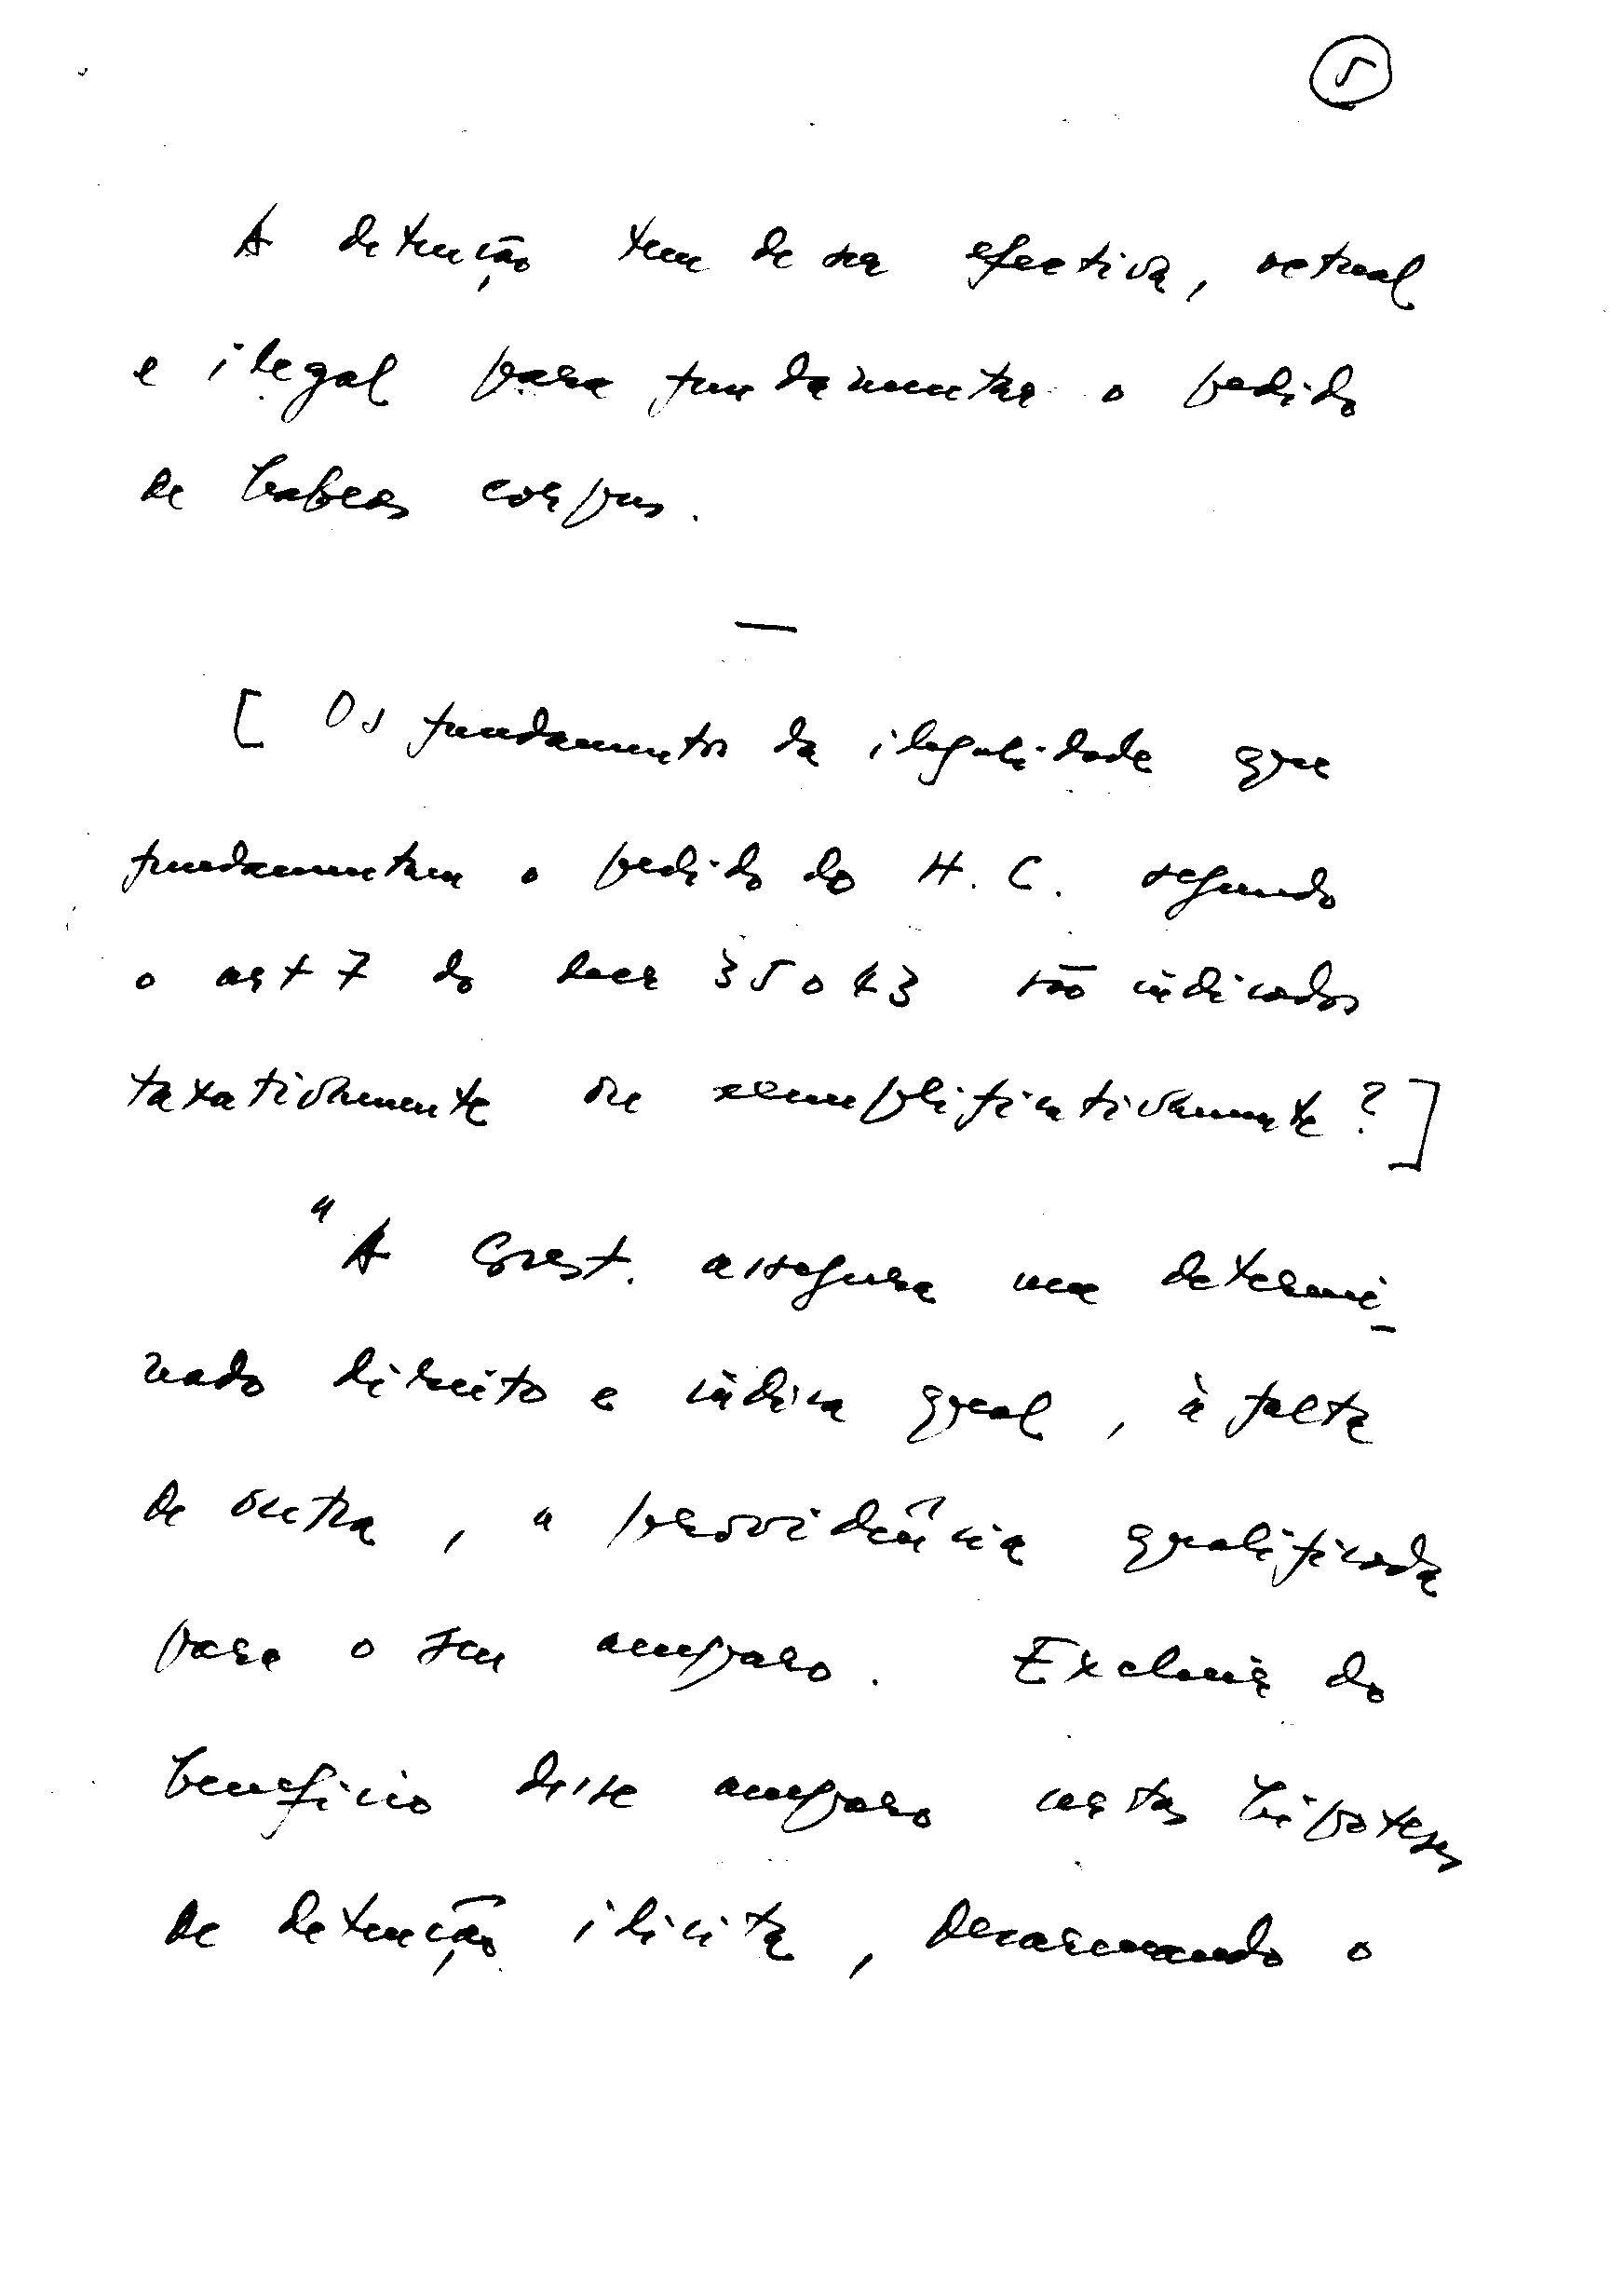 5
A detenção tem de ser efectiva, actual
e ilegal para fundamentar o pedido
de habeas corpus.
—
[ Os fundamentos da ilegalidade que
fundamentam o pedido do H. C. segundo
o art 7 do decr 35043 são indicados
taxativamente ou exemplificativamente? ]
"A Const. assegura um determi-
nado direito e indica qual, à falta
de outra, a providência qualificada
para o seu amparo. Excluir do
benefício desse amparo certas hipoteses
de detenção ilicita, desarmando o